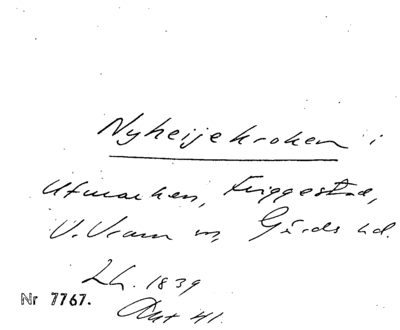 Nyheijekroken i
Utmarken, Friggestad,
V. Vram sn, Gärds hd.
Lh. 1839
Nr 7767.
Akt 41.